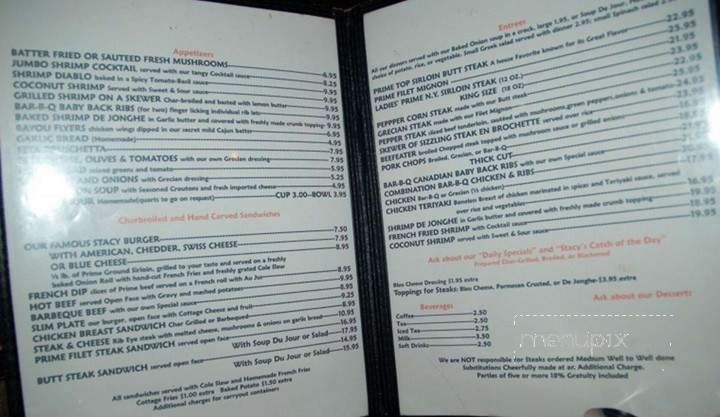 Appetizers
BATTER FRIED OR SAUTEED FRESH MUSHROOMS
JUMBO SHRIMP COCKTAIL served with our tangy Cocktail sauce 6.95
SHRIMP DIABLO baked in a Spicy Tomato-Basil sauce 8.25
COCONUT SHRIMP Served with Sweet & Sour sauce 9.95
GRILLED SHRIMP ON A SKEWER Char-broiled and basted with lemon butter 9.95
BAR-B-Q BABY BACK RIBS (for two) finger licking individual rib 9.95
BAKED SHRIMP DE JONGHE in Garlic butter and covered with freshly made crumb topping 9.95
BAYOU FLYERS chicken wings dipped in our secret mild Cajun batter 6.95
GARLIC BREAD (Homemade) 4.95
7.95
OLIVES & TOMATOES with our own Grecian dressing 7.95
mixed greens and tomato 5.95
AND ONIONS with Grecian dressing 5.25
SOUP with Seasoned Croutons and fresh imported cheese 4.95
(Homemade)(quarts to go on request) CUP 3.00--BOWL 3.95
Charbroiled and Hand Carved Sandwiches
OUR FAMOUS STACY BURGER 7.50
WITH AMERICAN, CHEDDER, SWISS CHEESE 7.95
OR BLUE CHEESE 8.95
½ lb. of Prime Ground Sirloin, grilled to your taste and served on a freshly
baked Onion Roll with hand-cut French Fries and freshly grated Cole Slaw
FRENCH DIP slices of Prime beef served on a French roll with Au Jus 8.95
HOT BEEF served Open Face with Gravy and mashed potatoes 9.95
BARBEQUE BEEF with our own Special sauce 8.95
SLIM PLATE our burger, open face with Cottage Cheese and fruit 9.25
CHICKEN BREAST SANDWICH Char Grilled or Barbequed 8.95
STEAK & CHEESE Rib Eye steak with melted cheese, mushrooms & onions on garlic bread 10.95
PRIME FILET STEAK SANDWICH served open face 16.95
With Soup Du Jour or Salad 17.95
BUTT STEAK SANDWICH served open face 14.95
With Soup Du Jour or Salad 15.95
All sandwiches served with Cole Slaw and Homemade French Fries
Cottage Fries $1.00 extra Baked Potato $1.50 extra
Additional charges for carryout containers
Entrees
All our dinners served with our Baked Onion soup in a crock, large 1.95, or Soup De Jour,
choice of potato, rice, or vegetable. Small Greek salad served with dinner 2.95; small Spinach salad
PRIME TOP SIRLOIN BUTT STEAK A house Favorite known for its Great Flavor 22.95
PRIME FILET MIGNON 25.95
LADIES' PRIME N.Y. SIRLOIN STEAK (12 OZ.) 23.95
KING SIZE (18 OZ) 22.95
PEPPER CORN STEAK made with our Butt steak 25.95
GRECIAN STEAK made with our Filet Mignon
PEPPER STEAK sliced beef tenderloin, sautéed with mushrooms, green peppers, onions & tomato
SKEWER OF SIZZLING STEAK EN BROCHETTE served over rice
BEEFEATER broiled Chopped steak topped with mushroom sauce or grilled onions
PORK CHOPS Broiled, Grecian, or Bar-B-Q
THICK CUT
BAR-B-Q CANADIAN BABY BACK RIBS with our own Special sauce
COMBINATION BAR-B-Q CHICKEN & RIBS
CHICKEN Bar-B-Q or Grecian (½ chicken)
CHICKEN TERIYAKI Boneless Breast of chicken marinated in spices and Teriyaki sauce, served
over rice and vegetables 16.95
SHRIMP DE JONGHE in Garlic butter and covered with freshly made crumb topping 19.95
FRENCH FRIED SHRIMP with Cocktail sauce 18.95
COCONUT SHRIMP served with Sweet & Sour sauce 19.95
Ask about our "Daily Specials" and "Stacy's Catch of the Day"
Prepared Char-Grilled, Broiled, or Blackened
Bleu Cheese Dressing $1.95 extra
Toppings for Steaks: Bleu Cheese, Parmesan Crusted, or De Jonghe-$3.95 extra
Beverages
Ask about our Desserts
Coffee 2.50
Tea 2.50
Iced Tea 2.75
Milk 3.50
Soft Drinks 2.50
menupix
We are NOT responsible for Steaks ordered Medium Well to Well done
Substitutions Cheerfully made at ar. Additional Charge.
Parties of five or more 18% Gratuity included